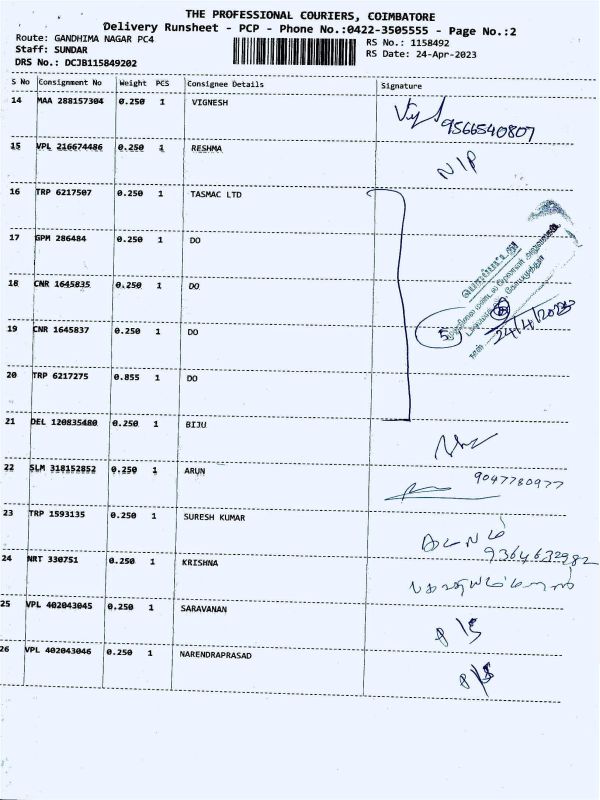 THE PROFESSIONAL COURIERS, COIMBATORE
Delivery Runsheet - PCP - Phone No.:0422-3505555 - Page No.:2
Route: GANDHIMA NAGAR PC4
RS No.: 1158492
Staff: SUNDAR
RS Date: 24-Apr-2023
DRS No.: DCJB115849202
S No Consignment No Weight PCS Consignee Details Signature
14 MAA 288157304 0.250 1 VIGNESH
9566540807
15 VPL 216674486 0.250 1 RESHMA
N/P
16 TRP 6217507 0.250 1 TASMAC LTD
17 GPM 286484 0.250 1 DO
18 CNR 1645835 0.250 1 DO
19 CNR 1645837 0.250 1 DO
5
24/4/2023
20 TRP 6217275 0.855 1 DO
21 DEL 120835480 0.250 1 BIJU
22 SLM 318152852 0.250 1 ARUN
9047780977
23 TRP 1593135 0.250 1 SURESH KUMAR
9364632982
24 NRT 330751 0.250 1 KRISHNA
25 VPL 402043045 0.250 1 SARAVANAN
26 VPL 402043046 0.250 1 NARENDRAPRASAD